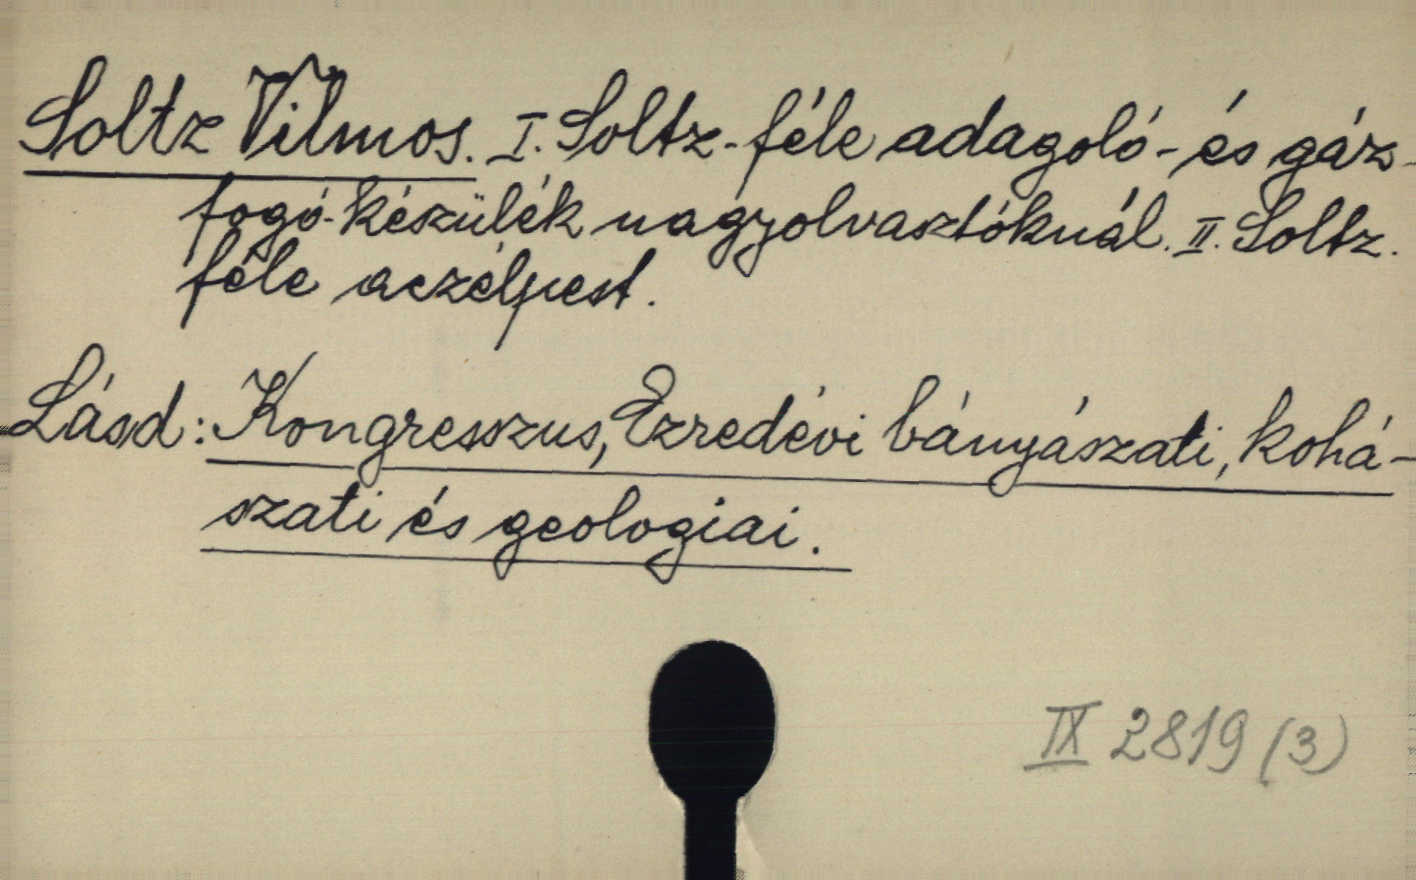 Soltz Vilmos. I. Soltz-féle adagoló- és gáz-
fogó-készülék nagyolvasztóknál. II. Soltz.
féle aczélpest.
Lásd: Kongresszus, Ezredévi bányászati, kohá-
szati és geologiai.
IX 2819 (3)